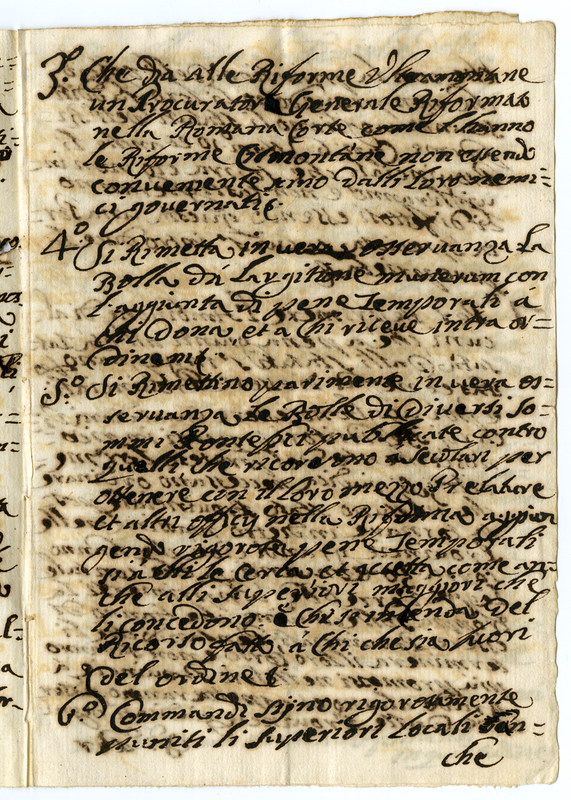 3.º Che dia alle Riforme Oltramontane
un Procurator Generale Riformato
nella Romana Corte come l'hanno
le Riforme Cismontane non essendo
conveniente sijno dalli loro nemi=
ci governati
4.º Si Rimetta in vera osservanza la
Bolla de Largitione munerum con
l'aggiunta di pene Temporali à
chi dona et a chi riceve intra or=
dinem
5.º Si Rimettino parimente in vera os=
servanza le Bolle di Diversi So=
mmi Pontefici publicate contro
quelli che ricorrono a secolari per
ottenere con il loro mezzo Prelature
et altri officij nella Riforma
pene Temporali
che alli superiori maggiori che
li concedino del
Ricorso fatto à chi che sia fuori
del ordine
6.º Commandi sijno rigorosamente
puniti li superiori Locali
che